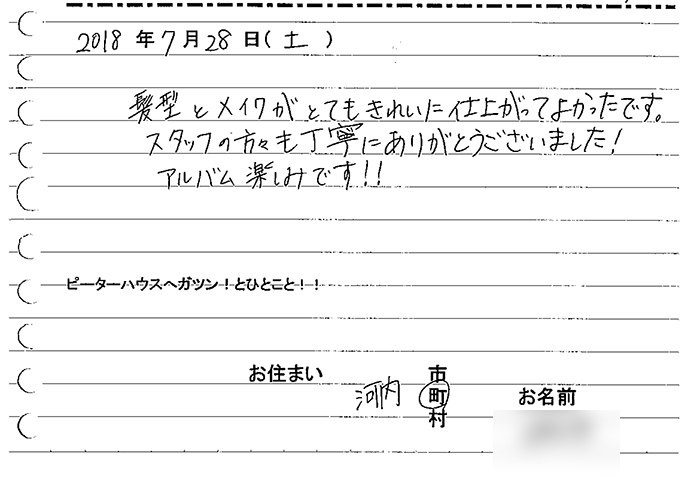 2018年7月28日(土)
髪型とメイクがとてもきれいに仕上がってよかったです。
スタッフの方々も丁寧にありがとうございました!
アルバム楽しみです!!
ピーターハウスへガツン!とひとこと!!
お住まい 河内 市町村 お名前